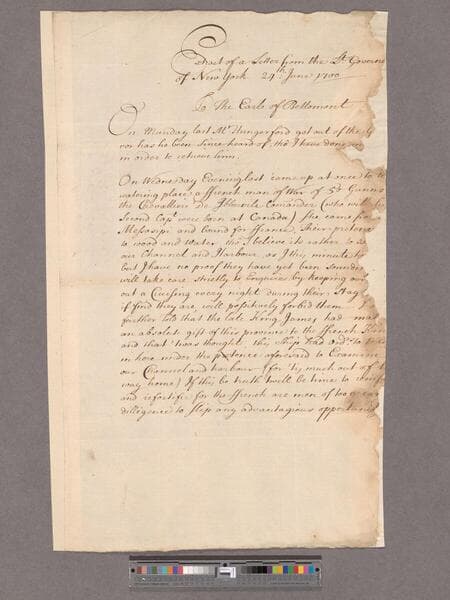 Extract of a Letter from the Lt. Governo
of New York 24th June 1700
To The Earle of Bellomont
On Munday last Mr. Hungerford got out of the
vor has he been since heard of, tho I have done my
in order to retrieve him.
On Wednesday Evening last came up at once to the
watering place a ffrench man of War of 50 Gunns
the Chevallier de Ibbervile Comander (who with his
second Capt. were born at Canada) she came from
Messasipi and bound for ffrance. Their pretence
to wood and Water. tho I believe its rather to
our Channel and Harbour, as I thy minute
but I have no proof they have yet been sounding
will take care strictly to Enquire by keeping
out a Cruising every night during their Stay
if find they are will positively forbid them
further told that the late King James had ma
an absolute gift of this province to the ffrench
and that 'twas thought, this Ship had ordrs. to
in here under the pretence aforesaid to Examine
our Channel and harbour (for 'ty much out of t
way home) If this be truth twill be time to
and refortifie for the ffrench are men of too
dilligence to slip any advantagious opportuni